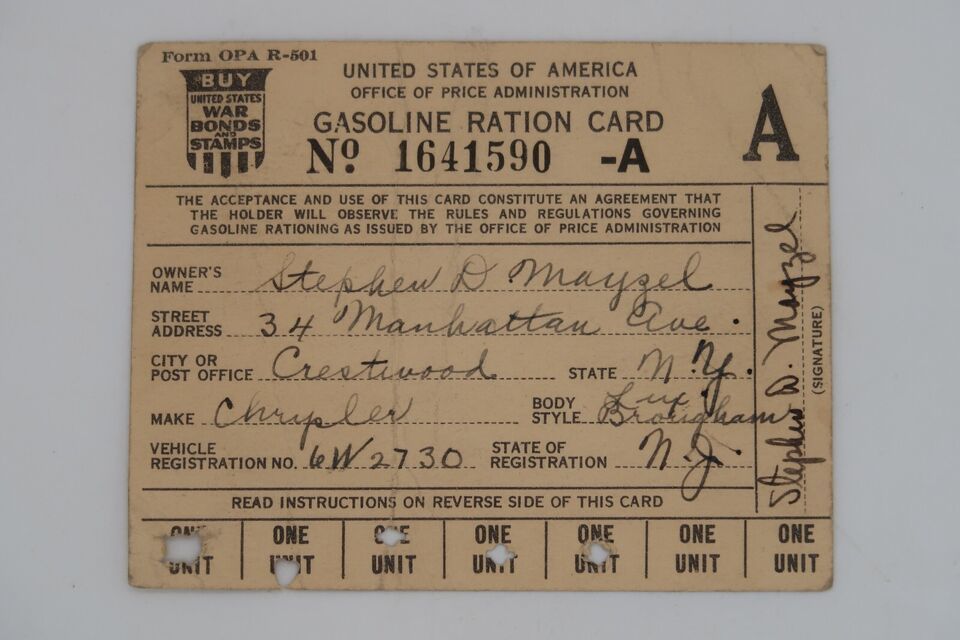 Form OPA R-501
BUY
UNITED STATES
WAR
BONDS
AND
STAMPS
UNITED STATES OF AMERICA
OFFICE OF PRICE ADMINISTRATION
GASOLINE RATION CARD
Nº 1641590 -A
A
THE ACCEPTANCE AND USE OF THIS CARD CONSTITUTE AN AGREEMENT THAT
THE HOLDER WILL OBSERVE THE RULES AND REGULATIONS GOVERNING
GASOLINE RATIONING AS ISSUED BY THE OFFICE OF PRICE ADMINISTRATION
OWNER'S
NAME Stephen D Mayzel
STREET
ADDRESS 34 Manhattan Ave.
CITY OR
POST OFFICE Crestwood STATE N.Y.
MAKE Chrysler BODY
STYLE Lux. Brougham
VEHICLE
REGISTRATION NO. 6W2730 STATE OF
REGISTRATION N.J.
Stephen D. Mayzel
(SIGNATURE)
READ INSTRUCTIONS ON REVERSE SIDE OF THIS CARD
ONE ONE ONE ONE ONE ONE ONE
UNIT UNIT UNIT UNIT UNIT UNIT UNIT